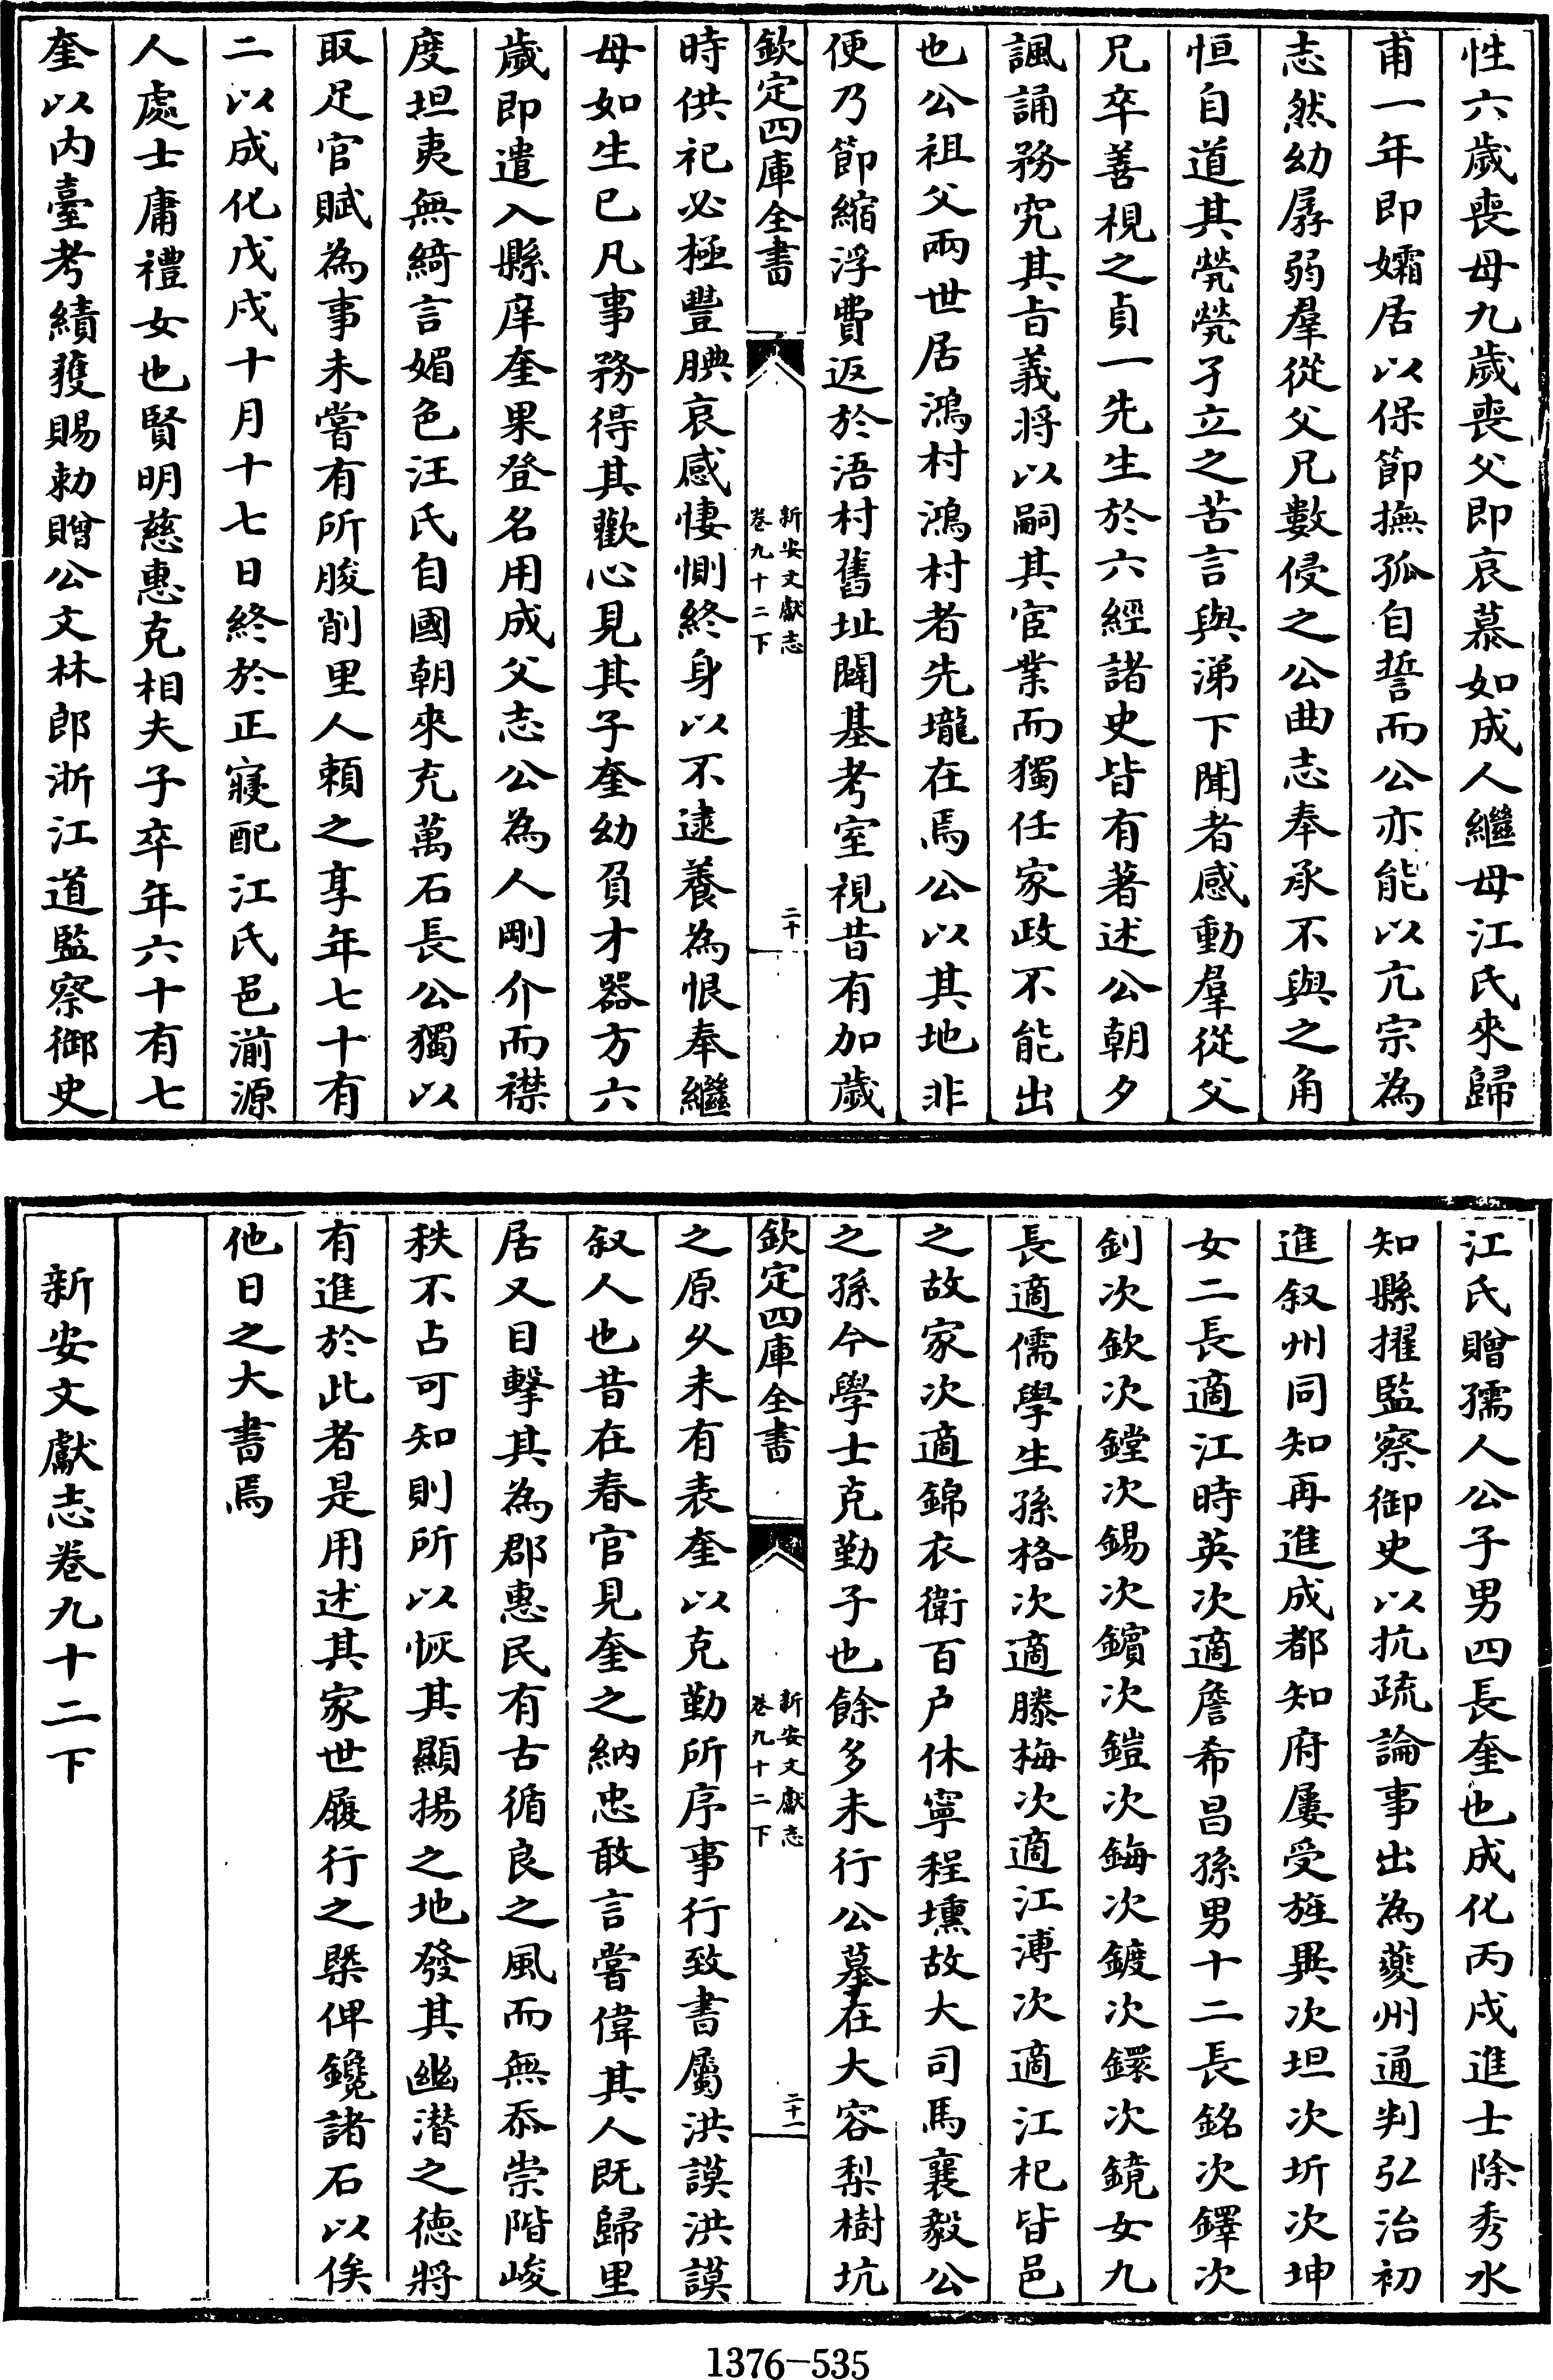 性六歲喪母九歲喪父即哀慕如成人繼母江氏來歸
甫一年即孀居以保節撫孤自誓而公亦能以亢宗為
志然幼孱弱羣從父兄數侵之公曲志奉承不與之角
恒自道其煢煢孑立之苦言與涕下聞者感動羣從父
兄卒善視之貞一先生於六經諸史皆有著述公朝夕
諷誦務究其旨義將以嗣其宦業而獨任家政不能出
也公祖父兩世居鴻村鴻村者先壠在焉公以其地非
便乃節縮浮費返於浯村舊址闢基考室視昔有加歲
欽定四庫全書
新安文獻志
卷九十二下
二十
時供祀必極豐腆哀感悽惻終身以不逮養為恨奉繼
母如生已凡事務得其歡心見其子奎幼負才器方六
歲即遣入縣庠奎果登名用成父志公為人剛介而襟
度坦夷無綺言媚色汪氏自國朝來充萬石長公獨以
取足官賦為事未嘗有所朘削里人頼之享年七十有
二以成化戊戌十月十七日終於正寢配江氏邑湔源
人處士庸禮女也賢明慈惠克相夫子卒年六十有七
奎以内臺考績獲賜勅贈公文林郎浙江道監察御史
江氏贈孺人公子男四長奎也成化丙戌進士除秀水
知縣擢監察御史以抗疏論事出為夔州通判弘治初
進叙州同知再進成都知府屢受旌異次坦次圻次坤
女二長適江時英次適詹希昌孫男十二長銘次鐸次
釗次欽次鏜次錫次鑌次鎧次鋂次鍍次鐶次鏡女九
長適儒學生孫格次適滕梅次適江溥次適江杞皆邑
之故家次適錦衣衛百户休寧程壎故大司馬襄毅公
之孫今學士克勤子也餘多未行公墓在大容梨樹坑
欽定四庫全書
新安文獻志
卷九十二下
二十一
之原久未有表奎以克勤所序事行致書屬洪謨洪謨
叙人也昔在春官見奎之納忠敢言嘗偉其人既歸里
居又目擊其為郡惠民有古循良之風而無忝崇階峻
秩不占可知則所以恢其顯揚之地發其幽潛之德將
有進於此者是用述其家世履行之槩俾鑱諸石以俟
他日之大書焉
新安文獻志卷九十二下
1376—535